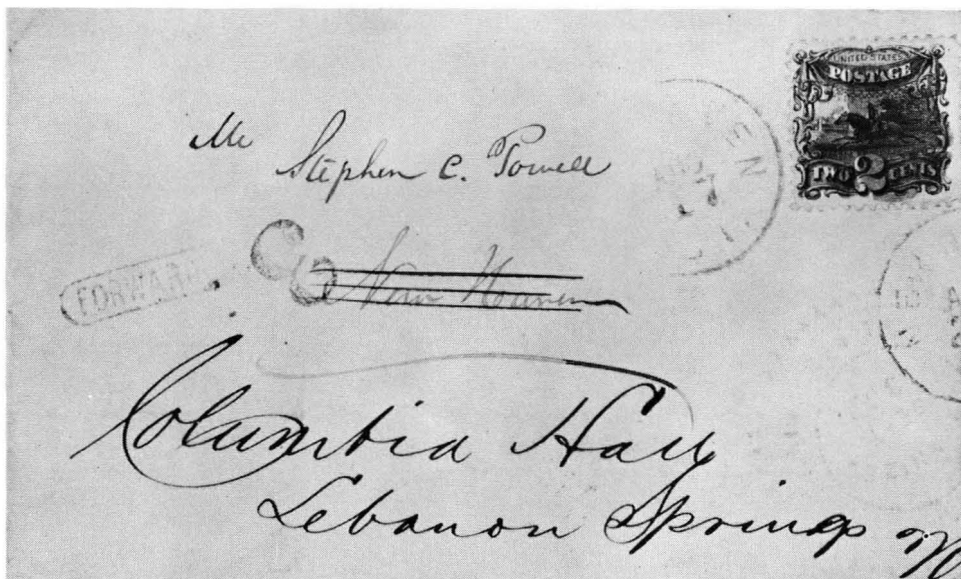 UNITED STATES
POSTAGE
TWO 2 CENTS
Mr Stephen C. Powell
New Haven
FORWARD
Columbia Hall
Lebanon Springs